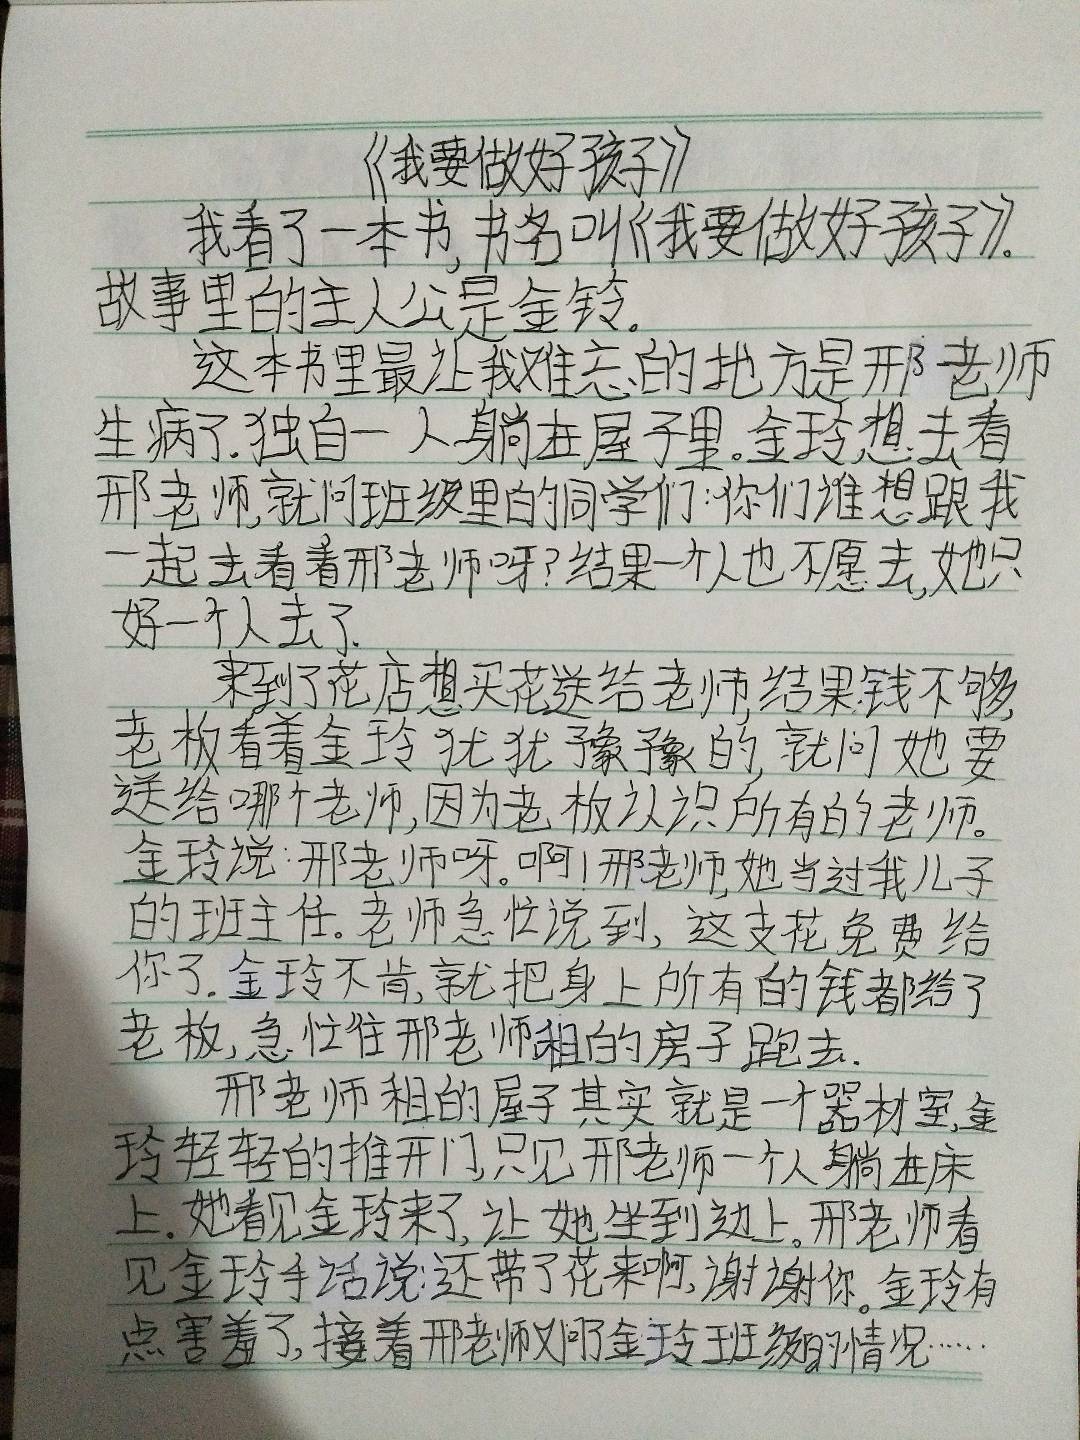 《我要做好孩子》
我看了一本书,书名叫《我要做好孩子》.
故事里的主人公是金铃。
这本书里最让我难忘的地方是邢老师
生病了.独自一人躺在屋子里。金玲想去看
邢老师,就问班级里的同学们:你们谁想跟我
一起去看看邢老师呀?结果一个人也不愿去,她只
好一个人去了.
来到了花店想买花送给老师,结果钱不够,
老板看着金玲犹犹豫豫的,就问她要
送给哪个老师,因为老板认识所有的老师。
金玲说:邢老师呀。啊!邢老师,她当过我儿子
的班主任。老师急忙说到,这支花免费给
你了.金玲不肯,就把身上所有的钱都给了
老板,急忙往邢老师租的房子跑去.
邢老师租的屋子其实就是一个器材室,金
玲轻轻的推开门,只见邢老师一个人躺在床
上.她看见金玲来了,让她坐到边上。邢老师看
见金玲手话说:还带了花来啊,谢谢你。金玲有
点害羞了,接着邢老师又问了金玲班级的情况……